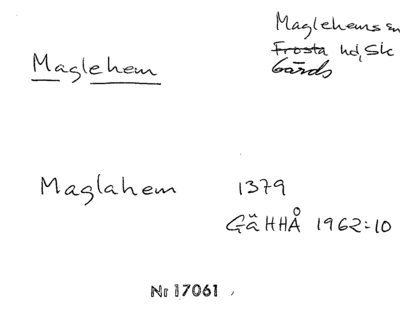 Maglehems sn
Frosta hd, Sk
Gärds
Maglehem
Maglahem 1379
GäHHÅ 1962:10
Nr 17061